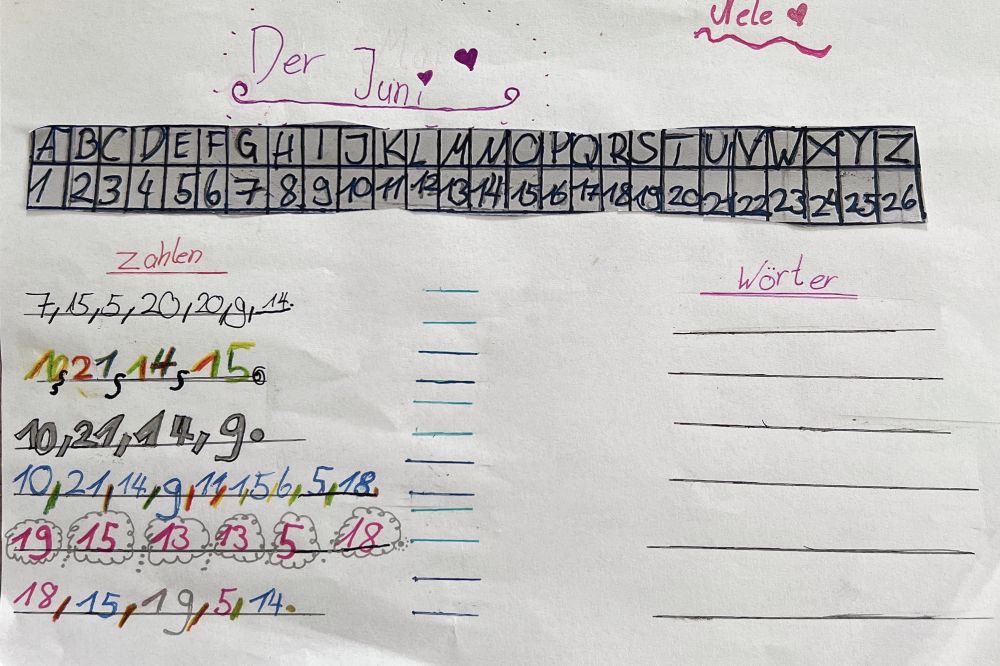 Nele
Der Juni
A B C D E F G H I J K L M N O P Q R S T U V W X Y Z
1 2 3 4 5 6 7 8 9 10 11 12 13 14 15 16 17 18 19 20 21 22 23 24 25 26
Zahlen
Wörter
7,15,5,20,20,9,14.
10,21,14,15.
10,21,14,9.
10,21,14,9,11,1,5,6,5,18.
19 15 13 13 5 18
18,15,19,5,14.